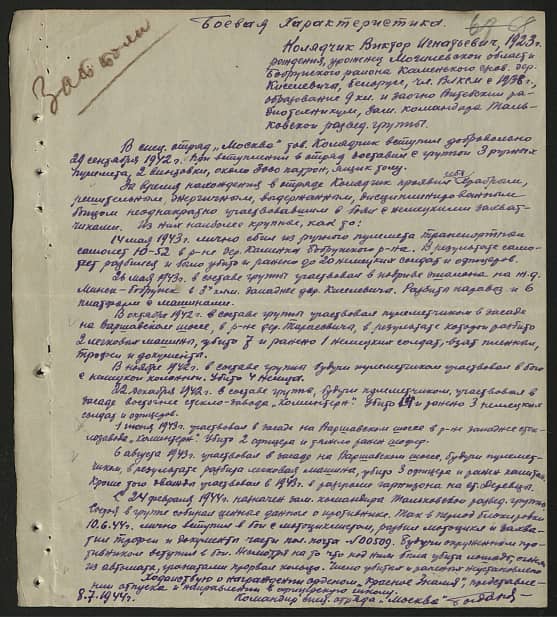 Боевая Характеристика.
69 68
Колядчик Виктор Игнатьевич, 1923г.
рождения, уроженец Могилевской области
Бобруйского района Каменского сов. дер.
Киселевичи, беларус, чл. ВЛКСМ с 1938г.,
образование 9 кл. и заочно Витебский ра-
диотехникум, зам. командира Таль-
ковской развед. группы.
В спец. отряд „Москва" тов. Колядчик вступил добровольно
29 сентября 1942г. При вступлении в отряд доставил с группой 3 ручных
пулемета, 2 винтовки, около 3000 патрон, ящик толу.
За время нахождения в отряде Колядчик проявил себя храбрым,
решительным, энергичным, выдержанным, дисциплинированным
бойцом неоднократно участвовавшим в боях с немецкими захват-
чиками. Из них наиболее крупные, как то:
14 мая 1943г. лично сбил из ручного пулемета транспортный
самолет Ю-52 в р-не дер. Каменка Бобруйского р-на. В результате само-
лет разбился и было убито и ранено до 20 немецких солдат и офицеров.
26 мая 1943г. в составе группы участвовал в подрыве эшелона на ж.д.
Минск-Бобруйск в 3х клм. западнее дер. Киселевичи. Разбит паровоз и 6
платформ с машинами.
В октябре 1942г. в составе группы участвовал пулеметчиком в засаде
на Варшавском шоссе, в р-не дер. Тарасовичи, в результате которой разбито
2 легковых машины, убито 7 и ранено 1 немецких солдат, взят пленный,
трофеи и документы.
В ноябре 1942г. в составе группы будучи пулеметчиком участвовал в бою
с немецкой колонной. Убито 4 немца.
22 декабря 1942г. в составе группы, будучи пулеметчиком, участвовал в
засаде восточнее стекло-завода „Коминтерн". Убито 14 и ранено 3 немецких
солдат и офицеров.
1 июня 1943г. участвовал в засаде на Варшавском шоссе в р-не западнее стек-
лозавода „Коминтерн". Убито 2 офицера и тяжело ранен шофер.
6 августа 1943г. участвовал в засаде на Варшавском шоссе, будучи пулемет-
чиком, в результате разбита легковая машина, убито 3 офицера и ранен капитан.
Кроме того дважды участвовал в 1943г. в разгроме гарнизона на ст. Деревцы.
С 24 февраля 1944г. назначен зам. командира Тальковской развед. группы
Состоя в группе собирал ценные данные о противнике. Так в период блокировки
10.6.44г. лично вступил в бой с мотоциклистом, разбил мотоцикл и захва-
тил трофеи и документы части пол. почта №00509. Будучи окруженным про-
тивником вступил в бой. Несмотря на то что под ним была убита лошадь, огнем
из автомата, гранатами прорвал кольцо. Число убитых и раненых не установлено
Ходатайствую о награждении орденом „Красное Знамя", предоставле-
нии отпуска и направлении в офицерскую школу.
8.7.1944г. Командир спец. отряда „Москва"